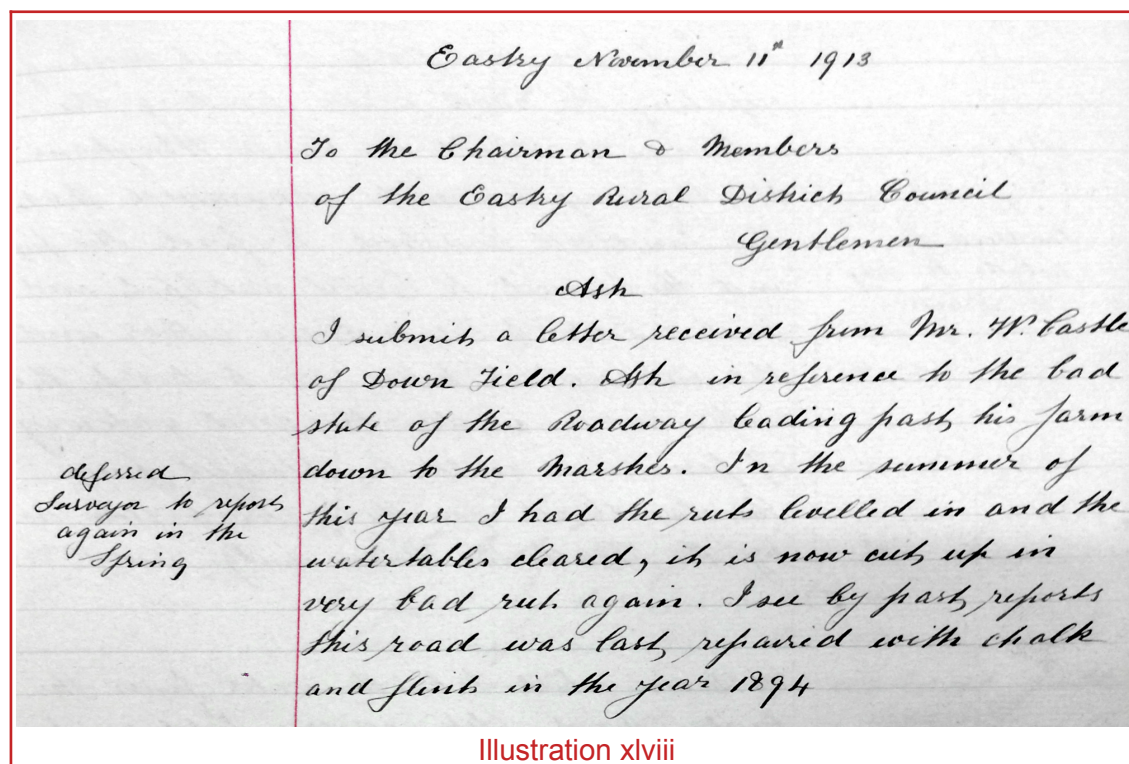 Eastry November 11th 1913
To the Chairman & Members
of the Eastry Rural District Council
Gentlemen
Ash
I submit a letter received from Mr. W. Castle
of Down Field. Ash in reference to the bad
state of the Roadway leading past his farm
down to the Marshes. In the summer of
this year I had the ruts levelled in and the
watertables cleared, it is now cut up in
very bad ruts again. I see by past reports
this road was last repaired with chalk
and flints in the year 1894
deferred
Surveyor to report
again in the
Spring
Illustration xlviii